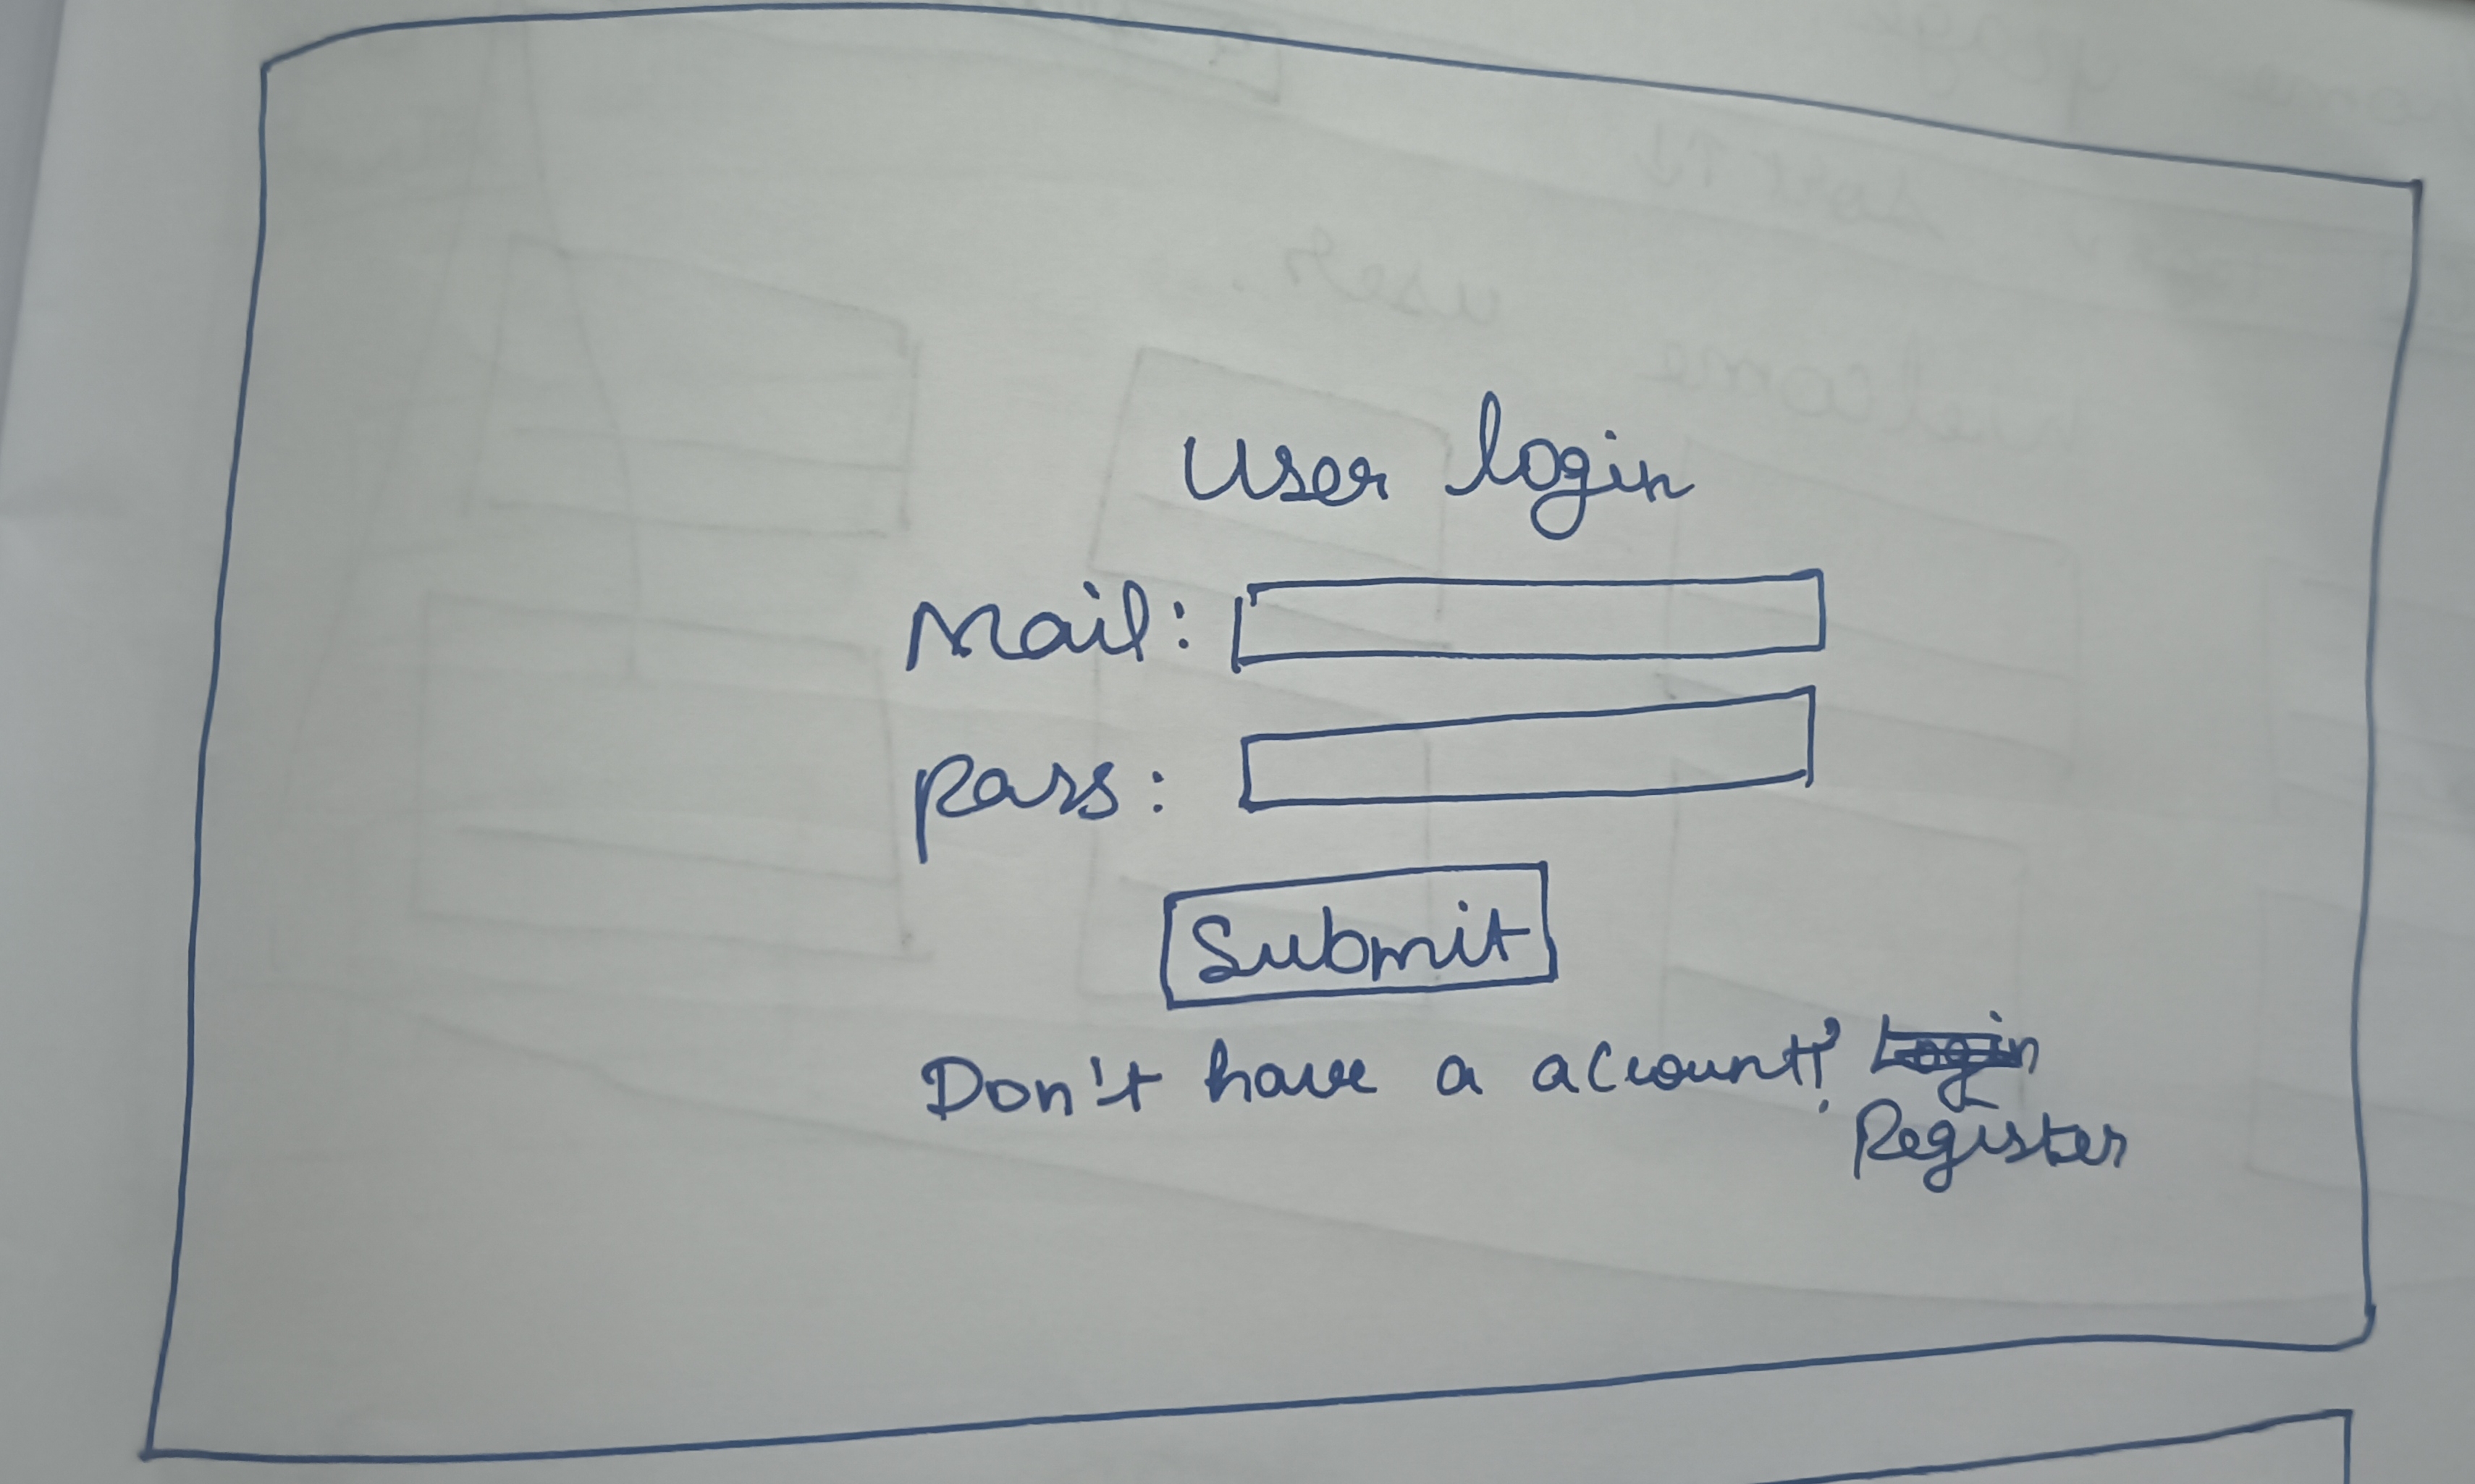 user login
Mail:
pass:
Submit
Don't have a account? Login
Register
user...
welcome